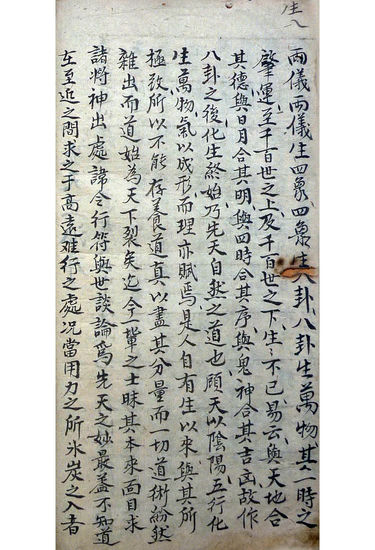 生八
兩儀兩儀生四象四象生八卦八卦生萬物其一時之
肇運至千百世之上及千百世之下生〻不已易云與天地合
其德與日月合其明與四時合其序與鬼神合其吉凶故作
八卦之後化生終始乃先天自然之道也頋天以陰陽五行化
生萬物氣以成形而理亦賦焉是人自有生以來與其所
極致所以不能存養道真以盡其分量而一切道術紛然
雜出而道始為天下裂矣迄今一輩之士昧其本來面目求
諸將神出處諱令行符與世談論爲先天之妙最盖不知道
在至近之間求之于高遠难行之處况當用力之所氷炭之入者